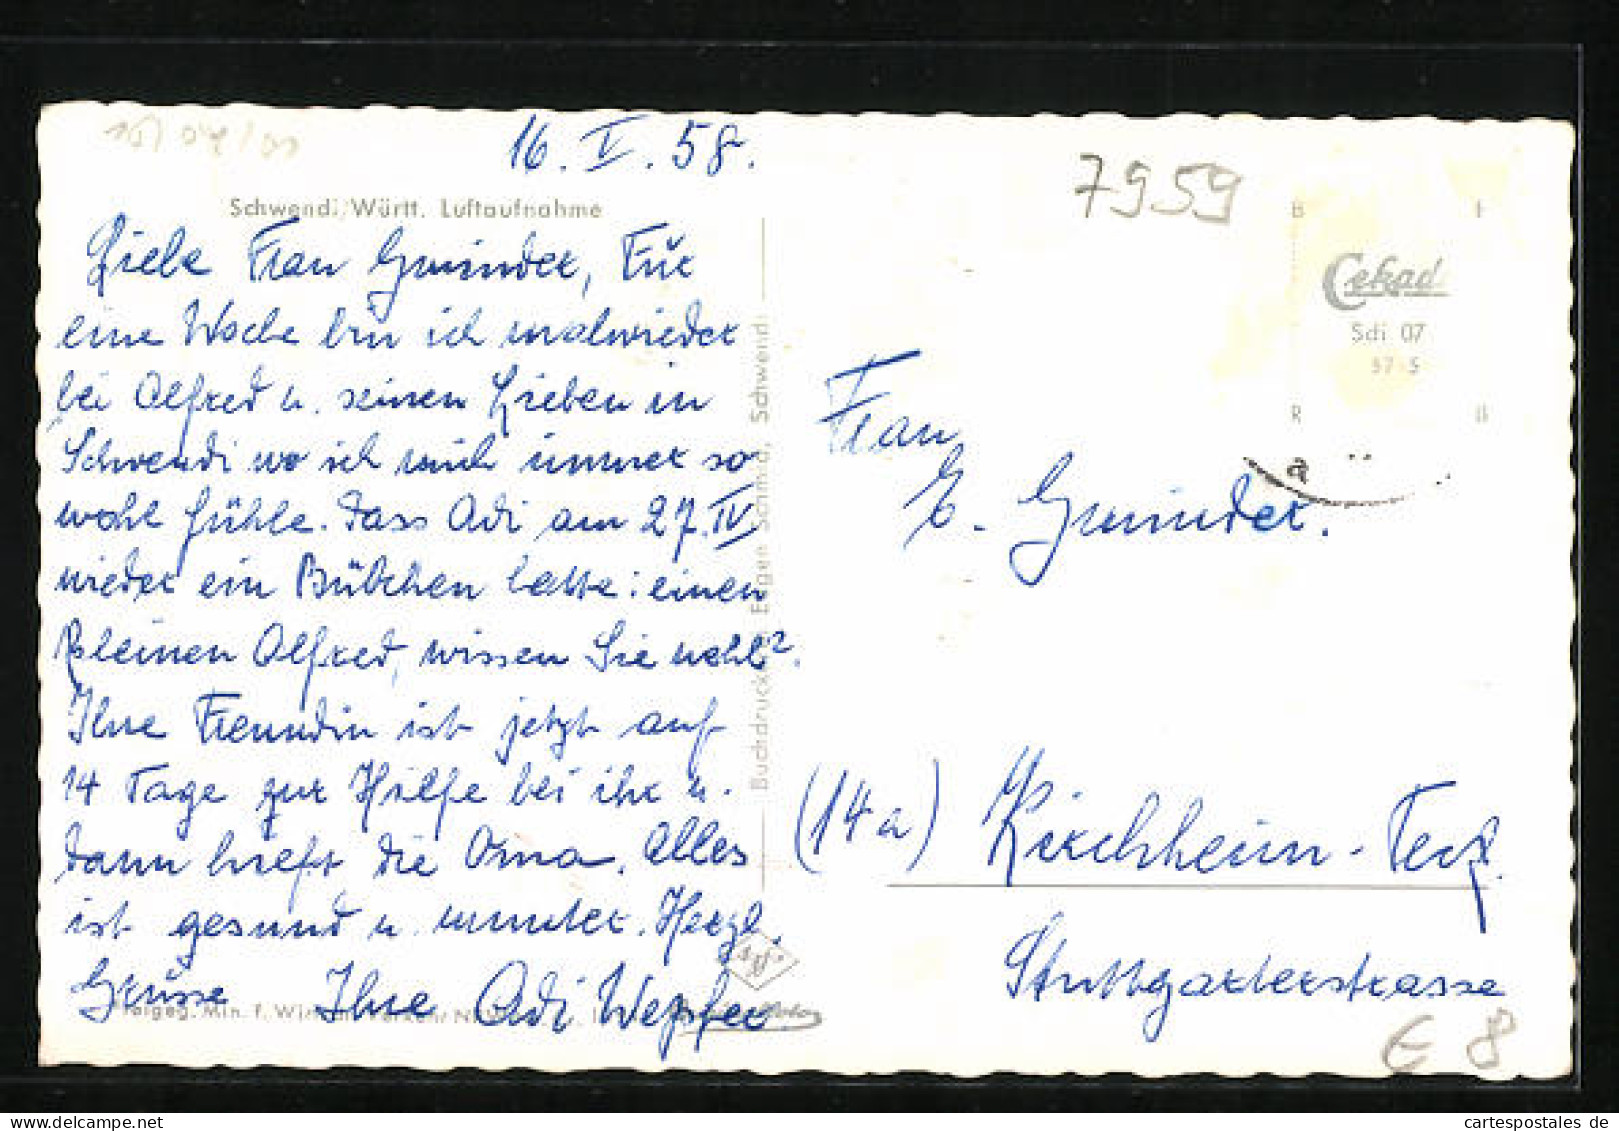 16. V. 58.
7959
Schwendi/Württ. Luftaufnahme
Liebe Frau Gminder, Für
eine Woche bin ich malwieder
bei Alfred u. seinen Lieben in
Schwendi wo ich mich immer so
wohl fühle. dass Adi am 27. IV
wieder ein Bübchen hatte: einen
kleinen Alfred, wissen Sie wohl?
Ihre Freundin ist jetzt auf
14 Tage zur Hilfe bei ihr u.
dann hilft die Oma. Alles
ist gesund u. munter. Herzl.
Grüsse Ihre Adi Wepfer
Buchdruckerei Eugen Schmid, Schwendi
Cekade
Sdi 07
57 5
a
Frau
E. Gminder.
(14a) Kirchheim-Teck
Stuttgarterstrasse
€ 8
cartespostales de